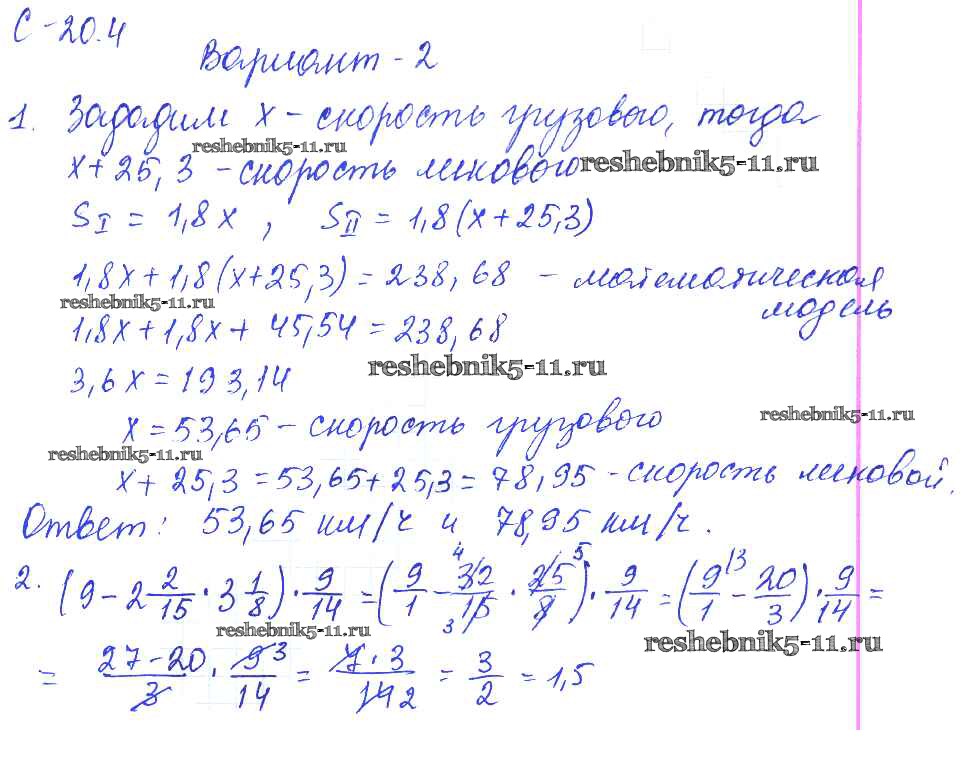 С-20.4
Вариант-2
1. Зададим x - скорость грузового, тогда
reshebnik5-11.ru
x + 25,3 - скорость легкового
reshebnik5-11.ru
S_I = 1,8x, S_II = 1,8(x+25,3)
1,8x + 1,8(x+25,3) = 238,68 - математическая модель
reshebnik5-11.ru
1,8x + 1,8x + 45,54 = 238,68
reshebnik5-11.ru
3,6x = 193,14
reshebnik5-11.ru
x = 53,65 - скорость грузового
reshebnik5-11.ru
x + 25,3 = 53,65 + 25,3 = 78,95 - скорость легковой.
Ответ: 53,65 км/ч и 78,95 км/ч.
2. (9 - 2 2/15 · 3 1/8) · 9/14 = (9/1 - 32/15 · 25/8) · 9/14 = (9/1 - 20/3) · 9/14 =
reshebnik5-11.ru
reshebnik5-11.ru
= 27-20/3 · 9/14 = 7·3/14 2 = 3/2 = 1,5